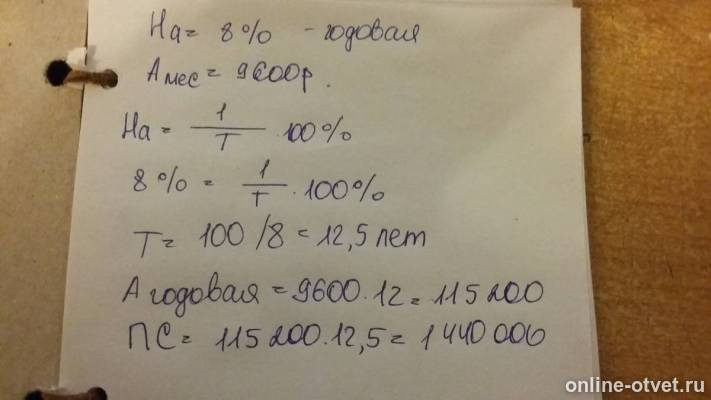 На = 8% - годовая
Амес = 9600р.
На = 1/Т · 100%
8% = 1/Т · 100%
Т = 100/8 = 12,5 лет
А годовая = 9600·12 = 115200
ПС = 115200·12,5 = 1440000
online-otvet.ru